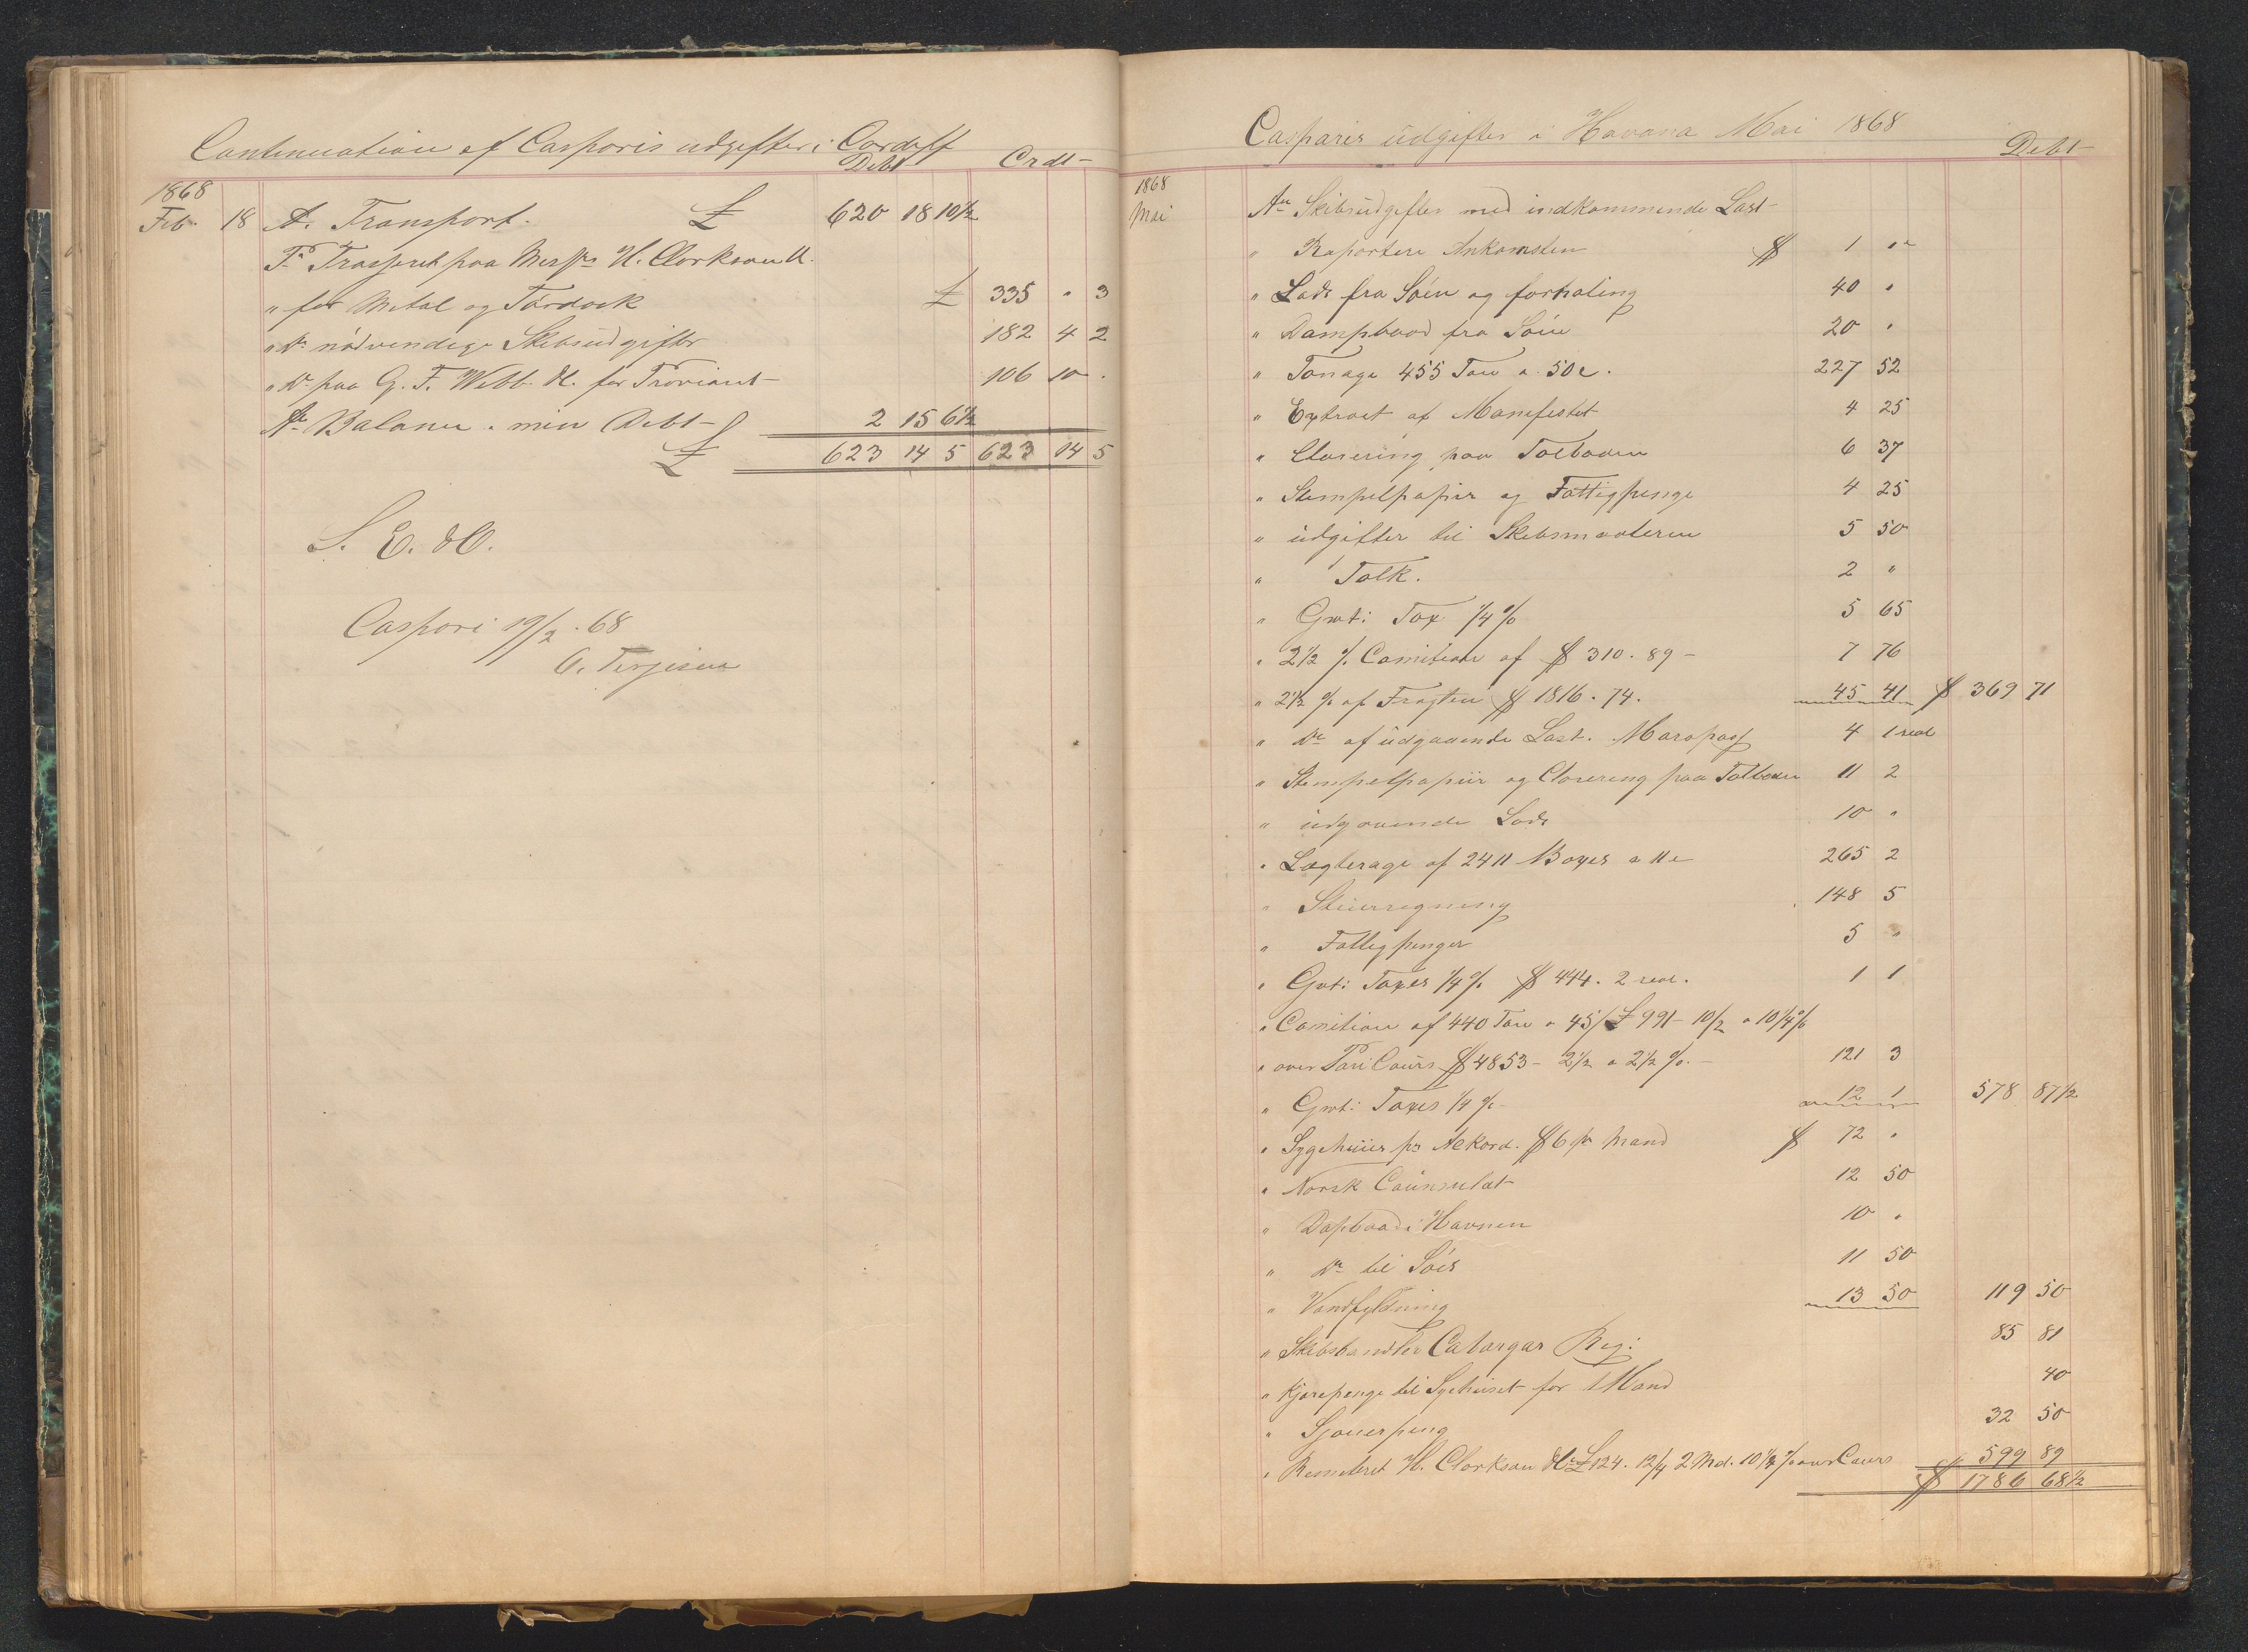 Continuation af Casparis udgifter i Cardiff
Debt Crdt
1868
Feb. 18 A. Transport. £ 620 18 10½
Pr Trasseret paa Messrs H. Clarkson &
" for Metal og Tørdock £ 335 " 3
" Do nødvendige Skibsudgifter 182 4 2
" Do paa G. F. Webb & for Proviant 106 10 .
An Balance. min Debt 2 15 6½
£ 623 14 5 623 14 5
S. E. & O.
Caspari 19/2. 68
O. Terjesen
Casparis udgifter i Havana Mai 1868
Debt
1868
Mai An Skibsudgifter med indkommende Last
" Raportere Ankomsten $ 1 "
" Lods fra Søen og forhaling 40 "
" Dampbaad fra Søen 20 "
" Tonage 455 Ton a 50c. 227 52
" Extract af Manifestet 4 25
" Clarering paa Tolboden 6 37
" Stempelpapir og Fattigpenge 4 25
" udgifter til Skibsmaaleren 5 50
" Tolk. 2 "
" Gvt: Tax ¼ % 5 65
" 2½ % Comition af $ 310. 89 - 7 76
" 2½ % af Fragten $ 1816. 74. 45 41 $ 369 71
" Do af udgaaende Last. 4 1 real
" Stempelpapiir og Clarering paa Tolboden 11 2
" udgaaende Lods 10 "
" Lægterage af 2411 Boxes a 11c 265 2
" Stuerregning 148 5
" Fattigpenger 5 "
" Gvt: Taxes ¼ % $ 444. 2 real. 1 1
" Comition af 440 Ton a 45/ £ 991- 10/2 a 10/4 %
" over Pari Cours $ 4853- 2½ a 2½ %. - 121 3
" Gvt: Taxes ¼ % 12 1 578 87½
" Sygehuus pr Akord. $ 6 pr Mand $ 72 "
" Norsk Counsulat 12 50
" Dapbaad i Havnen 10 "
" Do til Søes 11 50
" Vandfyldning 13 50 119 50
" Skibshandler Catargas Reg: 85 81
" Kjørepenge til Sygehuset for 1 Mand 40
" Sjouerpeng 32 50
" Remiteret H. Clarkson & £ 124. 12/4 2 Md. 10¼ % over Cours 599 89
$ 1786 68½